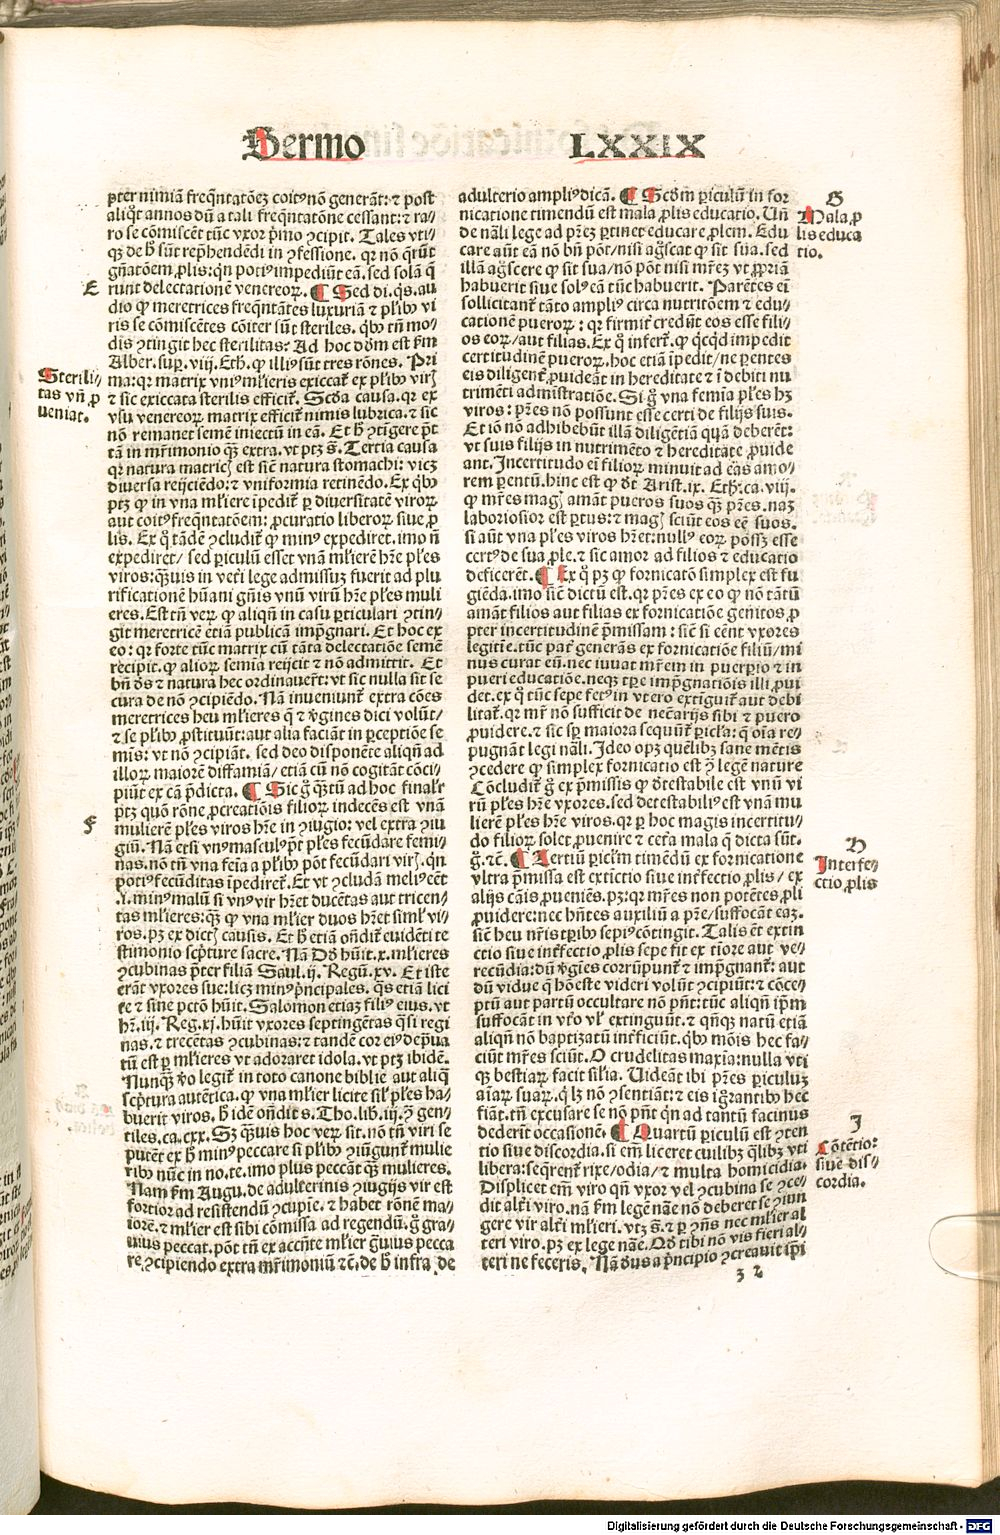 Sermo LXXIX
pter nimiā freq̄ntatōeꝫ coitꝰ nō generāt: ⁊ post
aliq̄t annos dū a tali freq̄ntatōne cessant: ⁊ ra/
ro se cōmiscēt tūc vxor p̄mo ꝯcipit. Tales vti/
qꝫ de h̄ sūt rep̄hendēdi in ꝯfessione. qꝛ nō q̄rūt
gn̄atōem ꝓlis: qn̄ potiꝰ impediūt eā. sed solā q̄
E
runt delectationē venereoꝝ. ¶ Sed di. q̄s. au
dio ꝙ meretrices freq̄ntātes luxuriā ⁊ pl̄ibꝰ vi
ris se cōmiscētes cōiter sūt steriles. q̄bꝰ tn̄ mo/
dis ꝯtingit hec sterilitas: Ad hoc dōm est ẜm
Alber. suꝑ. viij. Eth. ꝙ illiꝰ sūt tres rōnes. Pri
Sterili/
tas vn̄ ꝓ
ueniat.
ma: qꝛ matrix vniꝰ ml̄ieris exiccat̄ ex pl̄ibꝰ virꝭ
⁊ sic exiccata sterilis efficit̄. Scd̄a causa. qꝛ ex
vsu venereoꝝ matrix efficit̄ nimis lubrica. ⁊ sic
nō remanet semē iniectū in eā. Et h̄ ꝯtīgere p̄t
tā in mr̄imonio qꝫ extra. vt ptꝫ s̄. Tertia causa
qꝛ natura matricꝭ est sic̄ natura stomachi: vicꝫ
diuersa reijciēdo: ⁊ vniformia retinēdo. Ex q̄bꝰ
ptꝫ ꝙ in vna ml̄iere īpedit̄ ꝑ diuersitatē viroꝝ
aut coitꝰ freq̄ntatōem: ꝓcuratio liberoꝝ siue ꝓ
lis. Ex q̄ tādē ꝯcludit̄ ꝙ minꝰ expediret. imo n̄
expediret/ sed ꝑiculū esset vnā ml̄ierē hr̄e pl̄es
viros: qꝫuis in vet̄i lege admissuꝫ fuerit ad plu
rificationē hūani gn̄is vnū virū hr̄e pl̄es muli
eres. Est tn̄ veꝝ ꝙ aliqn̄ in casu ꝑticulari ꝯtin/
git meretricē etiā publicā imp̄gnari. Et hoc ex
eo: qꝛ forte tūc matrix cū tāta delectatiōe semē
recipit. ꝙ alioꝝ semīa reijcit ⁊ nō admittit. Et
bn̄ ds̄ ⁊ natura hec ordinauer̄t: vt sic nulla sit se
cura de nō ꝯcipiēdo. Nā inueniunt̄ extra cōes
meretrices heu ml̄ieres q̄ ⁊ v̄gines dici volūt/
⁊ se pl̄ibꝰ ꝓstituūt: aut alia faciāt in ꝑceptiōe se
mīs: vt nō ꝯcipiāt. sed deo disponēte aliqn̄ ad
illoꝝ maiorē diffamiā/ etiā cū nō cogitāt cōci/
piūt ex cā p̄dicta. ¶ Sic ḡ qꝫtū ad hoc finalr̄
ptꝫ quō rōne ꝓcreatiōis filioꝝ indecēs est vnā
F
mulierē pl̄es viros hr̄e in ꝯiugio: vel extra ꝯiu
giū. Nā etsi vnꝰ masculꝰ p̄t pl̄es fecūdare femi/
nas. nō tn̄ vna fēia a pl̄ibꝰ pōt fecūdari virꝭ. qn̄
potiꝰ fecūditas īpediret̄. Et vt ꝯcludā meliꝰ eēt
.i. minꝰ malū si vnꝰ vir hr̄et ducētas aut tricen/
tas ml̄ieres: qꝫ ꝙ vna ml̄ier duos hr̄et siml̄ vi/
ros. pꝫ ex dictꝭ causis. Et h̄ etiā on̄dit̄ euidēti te
stimonio scp̄ture sacre. Nā Dd̄ hūit. x. ml̄ieres
ꝯcubinas p̄ter filiā Saul. ij. Regū. xv. Et iste
erāt vxores sue: licꝫ minꝰ p̄ncipales. q̄s etiā lici
te ⁊ sine pctō hūit. Salomon etiaꝫ filiꝰ eius. vt
hr̄. iij. Reg. xj. hūit vxores septingētas q̄si regi
nas. ⁊ trecētas ꝯcubinas: ⁊ tandē cor eiꝰ dep̄ua
tū est ꝑ ml̄ieres vt adoraret idola. vt ptꝫ ibidē.
Nunqꝫ v̄o legit̄ in toto canone biblie aut aliq̄
scp̄tura autētica. ꝙ vna ml̄ier licite sil̄ pl̄es ha/
buerit viros. h̄ idē on̄dit s. Tho. lib. iij. ꝯ̄ gen/
tiles. ca. cxx. Sꝫ qꝫuis hoc veꝝ sit. nō tn̄ viri se
putēt ex h̄ minꝰ peccare si pl̄ibꝰ ꝯiūgunt̄ mulie
ribꝰ nūc in no. te. imo plus peccāt qꝫ mulieres.
Nam ẜm Augu. de adulterinis ꝯiugijs vir est
fortior ad resistendū ꝯcupīe. ⁊ habet rōnē ma/
iorē. ⁊ ml̄ier est sibi cōmissa ad regendū. ḡ gra/
uius peccat. pōt tn̄ ex accn̄te ml̄ier ḡuius pecca
re. ꝯcipiendo extra mr̄imoniū ⁊c̄. de h̄ infra de
adulterio ampliꝰ dicā. ¶ Scd̄m ꝑiculū in for
nicatione timendū est mala ꝓlis educatio. Un̄
G
Mala ꝓ
lis educa
tio.
de nāli lege ad pr̄eꝫ ꝑtinet educare ꝓlem. Edu
care aūt eā nō bn̄ pōt/ nisi aḡscat ꝙ sit sua. sed
illā aḡscere ꝙ sit sua/ nō pōt nisi mr̄eꝫ vt ꝓpriā
habuerit siue solꝰ eā tūc habuerit. Parētes eī
sollicitant̄ tāto ampliꝰ circa nutritōem ⁊ edu/
cationē pueroꝝ: qꝛ firmiꝰ credūt eos esse fili/
os eoꝝ/ aut filias. Ex q̄ infert̄. ꝙ qcq̄d impedit
certitudinē pueroꝝ. hoc etiā īpedit/ ne ꝑentes
eis diligent̄ ꝓuideāt in hereditate ⁊ ī debiti nu
trimēti admistratiōe. Si ḡ vna femīa pl̄es hꝫ
viros: pr̄es nō possunt esse certi de filijs suis.
Et iō nō adhibebūt illā diligētiā quā deberēt:
vt suis filijs in nutrimēto ⁊ hereditate ꝓuide
ant. Incertitudo eī filioꝝ minuit ad eas amo/
rem ꝑentū. hinc est ꝙ d̄t Arist. ix. Eth. ca. viij.
ꝙ mr̄es magꝭ amāt pueros suos qꝫ pr̄es. naꝫ
laboriosior est ꝑtus: ⁊ magꝭ sciūt eos eē suos.
si aūt vna pl̄es viros hr̄et: nullꝰ eoꝝ posꝫ esse
certꝰ de sua ꝓle. ⁊ sic amor ad filios ⁊ educatio
deficerēt. ¶ Ex q̄ pꝫ ꝙ fornicatō simplex est fu
giēda. imo sic̄ dictū est. qꝛ pr̄es ex eo ꝙ nō tātū
amāt filios aut filias ex fornicatiōe genitos ꝓ
pter incertitudinē p̄missam: sic̄ si eēnt vxores
legitīe. tūc pat̄ generās ex fornicatiōe filiū/ mi
nus curat eū. nec iuuat mr̄em in puerꝑio ⁊ in
pueri educatiōe. neqꝫ tꝑe imp̄gnatiōis illi ꝓui
det. ex q̄ tūc sepe fetꝰ in vtero extiguit̄ aut debi
litat̄. qꝛ mr̄ nō sufficit de nec̄arijs sibi ⁊ puero
ꝓuidere. ⁊ sic sꝑ maiora sequūt̄ ꝑicl̄a: q̄ oīa re/
pugnāt legi nāli. Ideo opꝫ quēlibꝫ sane mētis
ꝯcedere ꝙ simplex fornicatio est ꝯ̄ legē nature
Cōcludit̄ ḡ ex p̄missis ꝙ d̄testabile est vnū vi
rū pl̄es hr̄e vxores. sed detestabiliꝰ est vnā mu
lierē pl̄es hr̄e viros. qꝛ ꝑ hoc magis incertitu/
do filioꝝ solet ꝓuenire ⁊ cet̄a mala q̄ dicta sūt.
ḡ. ⁊c̄. ¶ Tertiū ꝑicl̄m timēdū ex fornicatione
H
Interfe/
ctio ꝓlis
vltra p̄missa est extictio siue int̄fectio ꝓlis/ ex
alijs cāis ꝓueniēs. pꝫ: qꝛ mr̄es non potētes ꝓli
ꝓuidere: nec hn̄tes auxiliū a pr̄e/ suffocāt eaꝫ.
sic̄ heu nr̄is tꝑibꝰ sepiꝰ cōtingit. Talis ēt extin
ctio siue int̄fectio ꝓlis sepe fit ex tiore aut ve/
recūdia: dū v̄gīes corrūpunt̄ ⁊ imp̄gnant̄: aut
dū vidue q̄ hōeste videri volūt ꝯcipiūt: ⁊ cōce/
ptū aut partū occultare nō pn̄t: tūc aliqn̄ ip̄m
suffocāt in vt̄o vl̄ extinguūt. ⁊ qn̄qꝫ natū etiā
aliqn̄ nō baptizatū int̄ficiūt. q̄bꝰ mōis hec fa/
ciūt mr̄es sciūt. O crudelitas maxīa: nulla vti
qꝫ bestiaꝝ facit sil̄ia. Uideāt ibi pr̄es ꝑiculuꝫ
aīaꝝ suaꝝ. q̄ lꝫ nō ꝯsentiāt: ⁊ eis igrātibꝰ hec
fiāt. tn̄ excusare se nō pn̄t qn̄ ad tantū facinus
dederīt occasionē. ¶ Quartū ꝑiculū est ꝯten
J
Cōtētio:
siue dis/
cordia.
tio siue discordia. si em̄ liceret cuilibꝫ q̄libꝫ vti
libera: seqrent̄ rixe/ odia/ ⁊ multa homicidia.
Displicet em̄ viro qn̄ vxor vel ꝯcubina se ꝯce/
dit alt̄i viro. nā ẜm legē nāe nō deberet se ꝯiun
gere vir alt̄i ml̄ieri. vtꝫ s̄. ⁊ ꝑ ꝯn̄s nec ml̄ier al
teri viro. pꝫ ex lege nāe. Qd̄ tibi nō vis fieri al/
teri ne feceris. Nā deus a p̄ncipio ꝯcreauit ip̄i
z 2
Digitalisierung gefördert durch die Deutsche Forschungsgemeinschaft - DFG